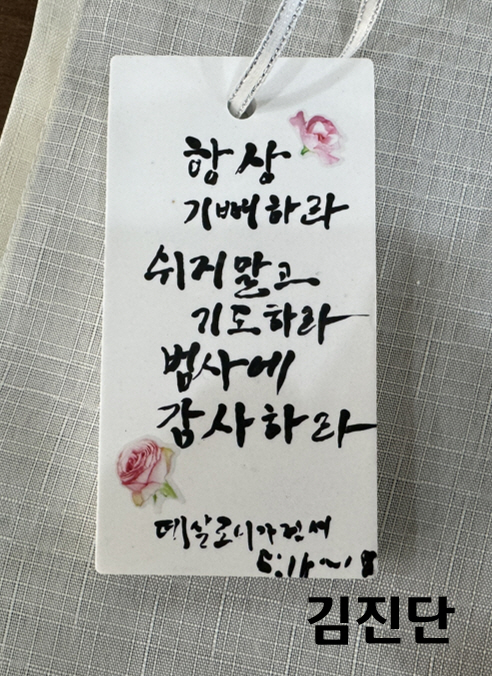 항상
기뻐하라
쉬지말고
기도하라
범사에
감사하라
데살로니가전서
5:16~18
김진단